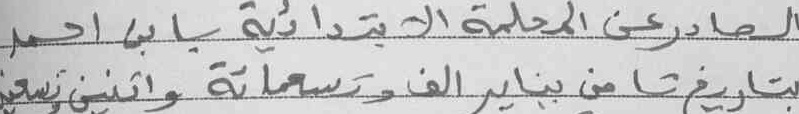 الصادر عن المحكمة الابتدائية بابن احمد
بتاريخ ثامن يناير الف وتسعمائة واثنين وتسعين